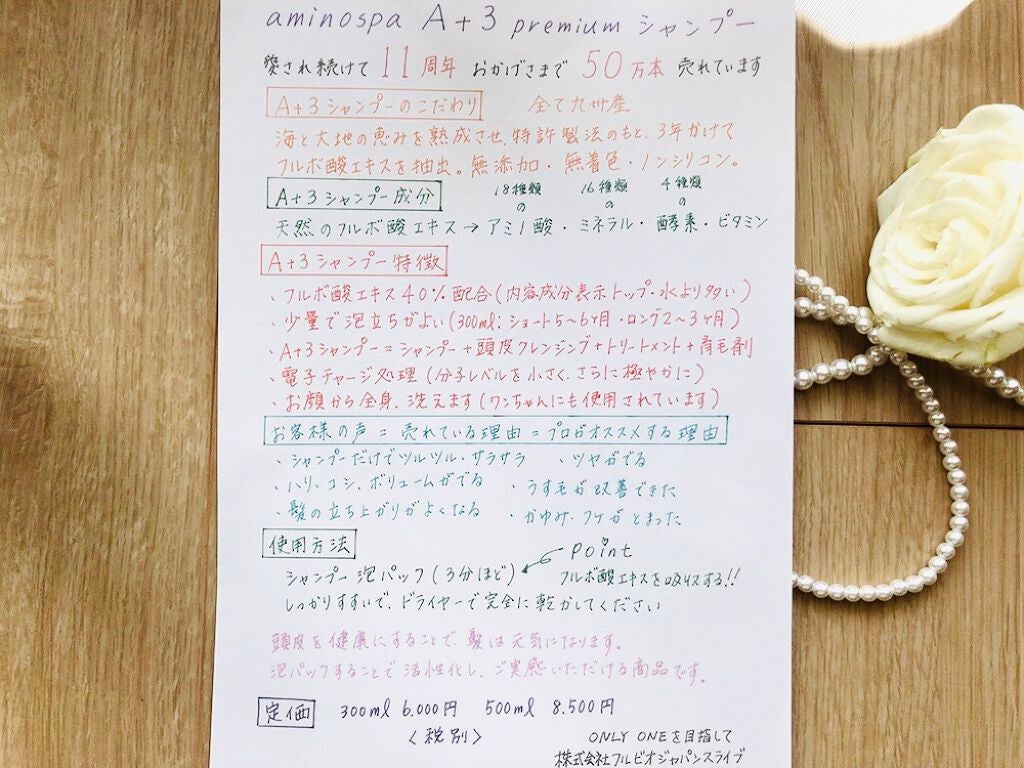 aminospa A+3 premium シャンプー
愛され続けて 11周年 おかげさまで 50万本 売れています
A+3シャンプーのこだわり 全て九州産
海と大地の恵みを熟成させ、特許製法のもと、3年かけて
フルボ酸エキスを抽出。無添加・無着色・ノンシリコン。
A+3シャンプー成分 18種類の 16種類の 4種類の
天然のフルボ酸エキス→アミノ酸・ミネラル・酵素・ビタミン
A+3シャンプー特徴
・フルボ酸エキス40%配合(内容成分表示トップ・水より多い)
・少量で泡立ちがよい(300ml:ショート5~6ヶ月・ロング2~3ヶ月)
・A+3シャンプー=シャンプー+頭皮クレンジング+トリートメント+育毛剤
・電子チャージ処理(分子レベルを小さく、さらに極やかに)
・お顔から全身、洗えます(ワンちゃんにも使用されています)
お客様の声=売れている理由=プロがオススメする理由
・シャンプーだけでツルツル・サラサラ ・ツヤがでる
・ハリ、コシ、ボリュームがでる ・うす毛が改善できた
・髪の立ち上がりがよくなる ・かゆみ、フケがとまった
使用方法
シャンプー泡パック(3分ほど) ← Point
フルボ酸エキスを吸収する!!
しっかりすすいで、ドライヤーで完全に乾かしてください
頭皮を健康にすることで、髪は元気になります。
泡パックすることで活性化し、ご実感いただける商品です。
定価 300ml 6.000円 500ml 8.500円
<税別>
ONLY ONEを目指して
株式会社フルビオジャパンスライブ